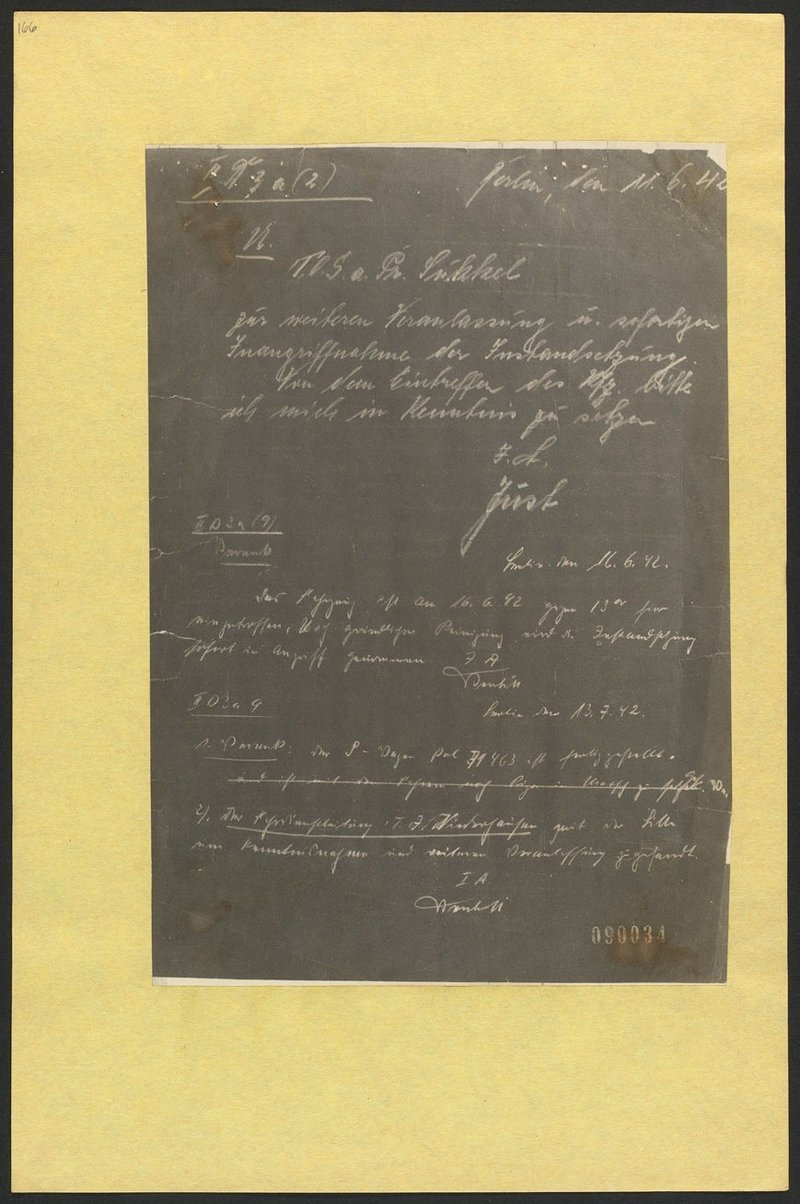 166
II D 3 a (2)
Berlin, den 11.6.42
U.
T.O.S. a. Pr. Sukkel
zur weiteren Veranlassung u. sofortigen
Inangriffnahme der Instandsetzung.
Von dem Eintreffen des Kfz. bitte
ich mich in Kenntnis zu setzen
I.A.
Just
II D 3 a (9)
Vermerk
Berlin den 16.6.42.
Das Fahrzeug ist am 16.6.42 gegen 13⁰⁰ hier
eingetroffen, Nach gründlicher Reinigung wird die Instandsetzung
sofort in Angriff genommen
I A
II D 3 a 9
Berlin den 13.7.42.
1. Vermerk: der S-Wagen Pol 71463 ist fertiggestellt.
und ist mit den Fahrern nach
2). Der Fahrdienstleitung. T.J. Niederhausen mit der Bitte
um Kenntnisnahme und weiteren Veranlassung zugesandt.
I A
090034